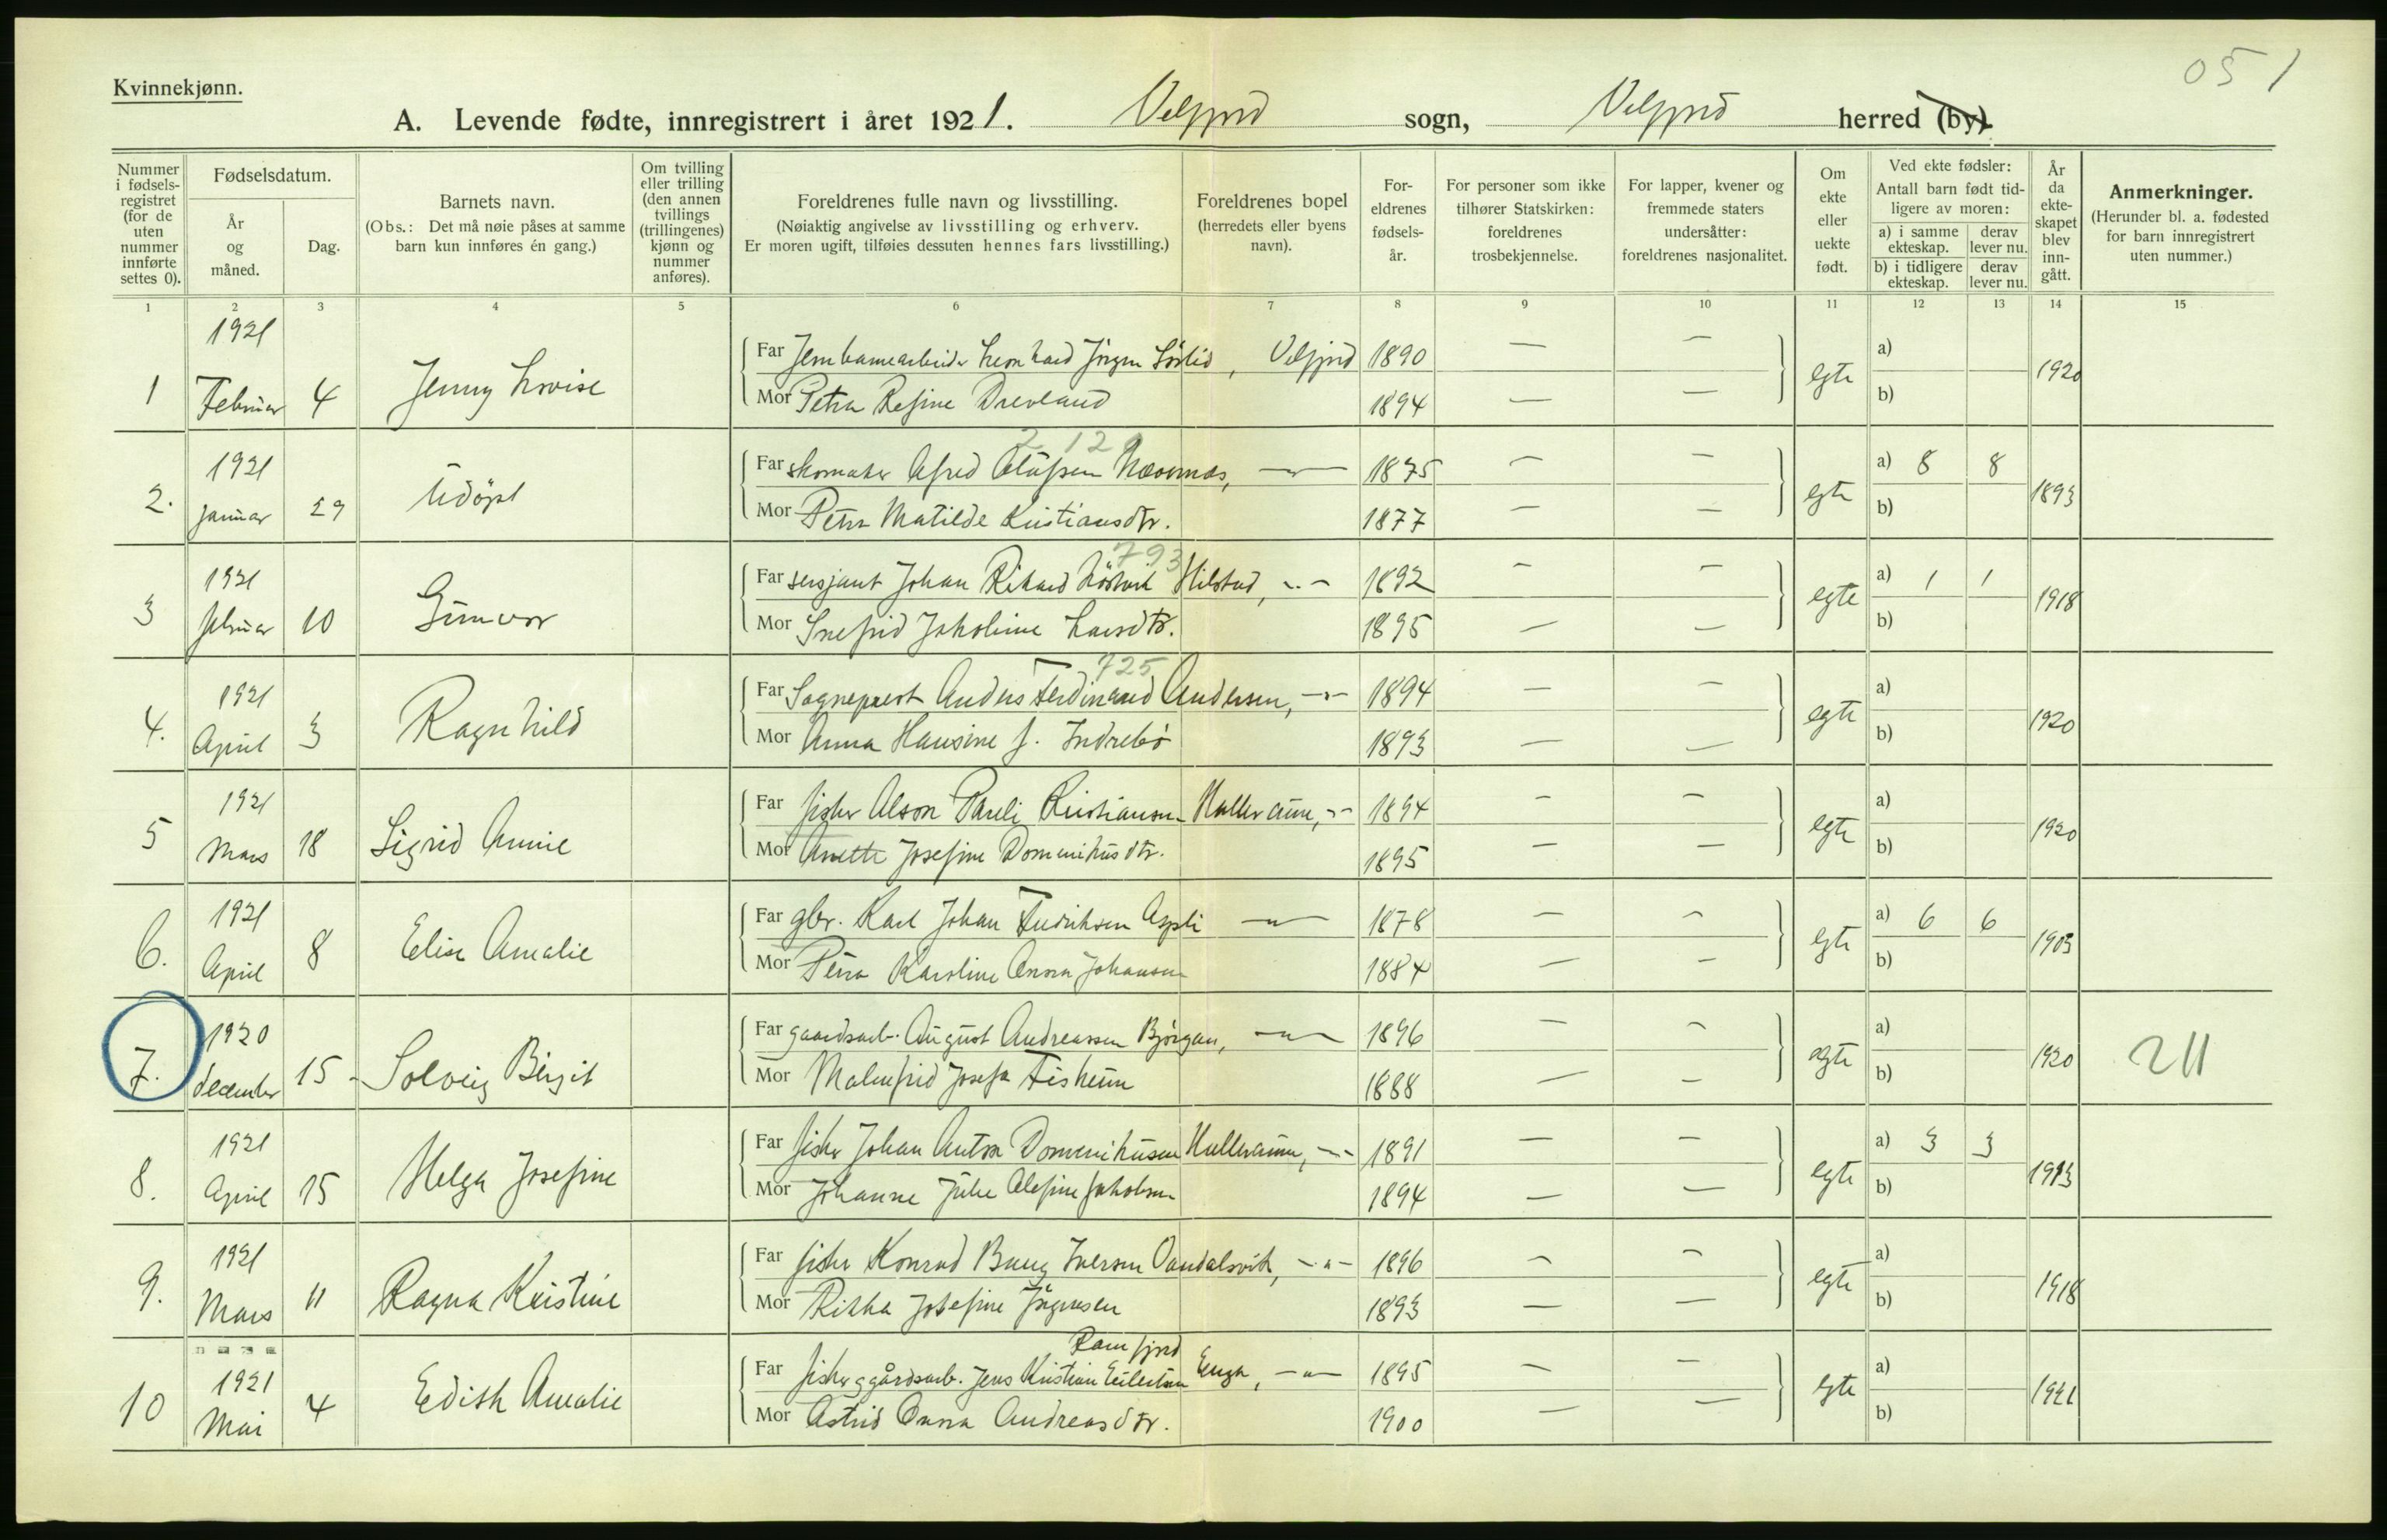 051
Kvinnekjønn.
A. Levende fødte, innregistrert i året 1921. Velfjord sogn, Velfjord herred (by).
Nummer i fødsels-registret (for de uten nummer innførte settes 0).
Fødselsdatum.
År og måned.
Dag.
Barnets navn.
(Obs.: Det må nøie påses at samme barn kun innføres én gang.)
Om tvilling eller trilling (den annen tvillings (trillingenes) kjønn og nummer anføres).
Foreldrenes fulle navn og livsstilling.
(Nøiaktig angivelse av livsstilling og erhverv.
Er moren ugift, tilføies dessuten hennes fars livsstilling.)
Foreldrenes bopel
(herredets eller byens navn).
For-eldrenes fødsels-år.
For personer som ikke tilhører Statskirken: foreldrenes trosbekjennelse.
For lapper, kvener og fremmede staters undersåtter: foreldrenes nasjonalitet.
Om ekte eller uekte født.
Ved ekte fødsler:
Antall barn født tid-ligere av moren:
a) i samme ekteskap.
derav lever nu.
b) i tidligere ekteskap.
derav lever nu.
År da ekte-skapet blev inn-gått.
Anmerkninger.
(Herunder bl. a. fødested for barn innregistrert uten nummer.)
1 2 3 4 5 6 7 8 9 10 11 12 13 14 15
1 1921 Februar 4 Jenny Lovise
Far Jernbanearbeider Leonhard Jörgen Sörlid, Velfjord 1890 — —
Mor Petra Resine Drevland 1894 — —
egte a) b) 1920
2. 1921 januar 29 Udöpt
212
Far skomaker Alfred Olufsen Nævernes, —"— 1875 — —
Mor Petra Matilde Kristiansdtr. 1877 — —
egte a) 8 8 b) 1893
3 1921 februar 10 Gunvor
793
Far sersjant Johan Rikard Hilstad, —"— 1892 — —
Mor Snefrid Jakoline Larsdtr. 1895 — —
egte a) 1 1 b) 1918
4. 1921 April 3 Ragnhild
725
Far Sogneprest Anders Ferdinand Andersen, —"— 1894 — —
Mor Anna Hansine f. Indrebö 1893 — —
egte a) b) 1920
5 1921 Mars 18 Sigrid Annie
Far fisker Alson Pareli Kristiansen Halleraune, —"— 1894 — —
Mor Anette Josefine Domenikusdtr. 1895 — —
egte a) b) 1920
6. 1921 April 8 Elise Amalie
Far gbr. Karl Johan Fredriksen Aspli —"— 1878 — —
Mor Petra Karoline Anna Johansen 1884 — —
egte a) 6 6 b) 1903
7. 1920 december 15 - Solveig Birgit
Far gaardsarb. August Andreassen Björgan, —"— 1896 — —
Mor Malmfrid Josefa Fisheim 1888 — —
egte a) b) 1920 211
8. 1921 April 15 Helga Josefine
Far fisker Johan Anton Domenikusen Halleraune, —"— 1891 — —
Mor Johanne Julie Olefine Jakobsen 1894 — —
egte a) 3 3 b) 1913
9. 1921 Mars 11 Ragna Kristine
Far fisker Konrad Iversen Vandalsvik, —"— 1896 — —
Mor Rikka Josefine Jörgensen 1893 — —
egte a) b) 1918
10 1921 Mai 4 Edith Amalie
Ramfjord
Far fisker g gårdsarb. Jens Kristian Eilertsen Enga, —"— 1895 — —
Mor Astrid Anna Andreasdtr. 1900 — —
egte a) b) 1921